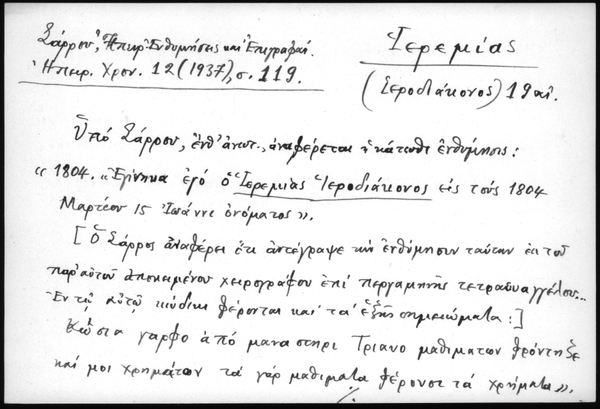 Σάρρου, Ἠπειρ. Ἐνθυμήσεις καὶ Ἐπιγραφαί.
Ἠπειρ. Χρον. 12 (1937), σ. 119.
Ἱερεμίας
(Ἱεροδιάκονος) 19 αἰ.
Ὑπό Σάρρου, ἔνθ' ἀνωτ., ἀναφέρεται ἡ κάτωθι ἐνθύμησις:
« 1804. «Ἐγίνηκα ἐγό ὁ Ἱερεμίας Ἱεροδιάκονος εἰς τούς 1804
Μαρτέου 15 Ἰωάννε ὀνόματος».
[Ὁ Σάρρος ἀναφέρει ὅτι ἀντέγραψε τήν ἐνθύμησιν ταύτην ἐκ τοῦ
παρ' αὐτοῦ ἀποκειμένου χειρογράφου ἐπί περγαμηνῆς τετραϋαγγέλου...
Ἐν τῷ αὐτῷ κώδικι φέρονται καί τά ἑξῆς σημειώματα:]
Κῶστα γαρφο ἀπό μαναστηρι Τριανο μαθιματων φρόντηζε
καί μοι χρημάτων τά γάρ μαθιματα φέρουσι τά χρήματα».
./.